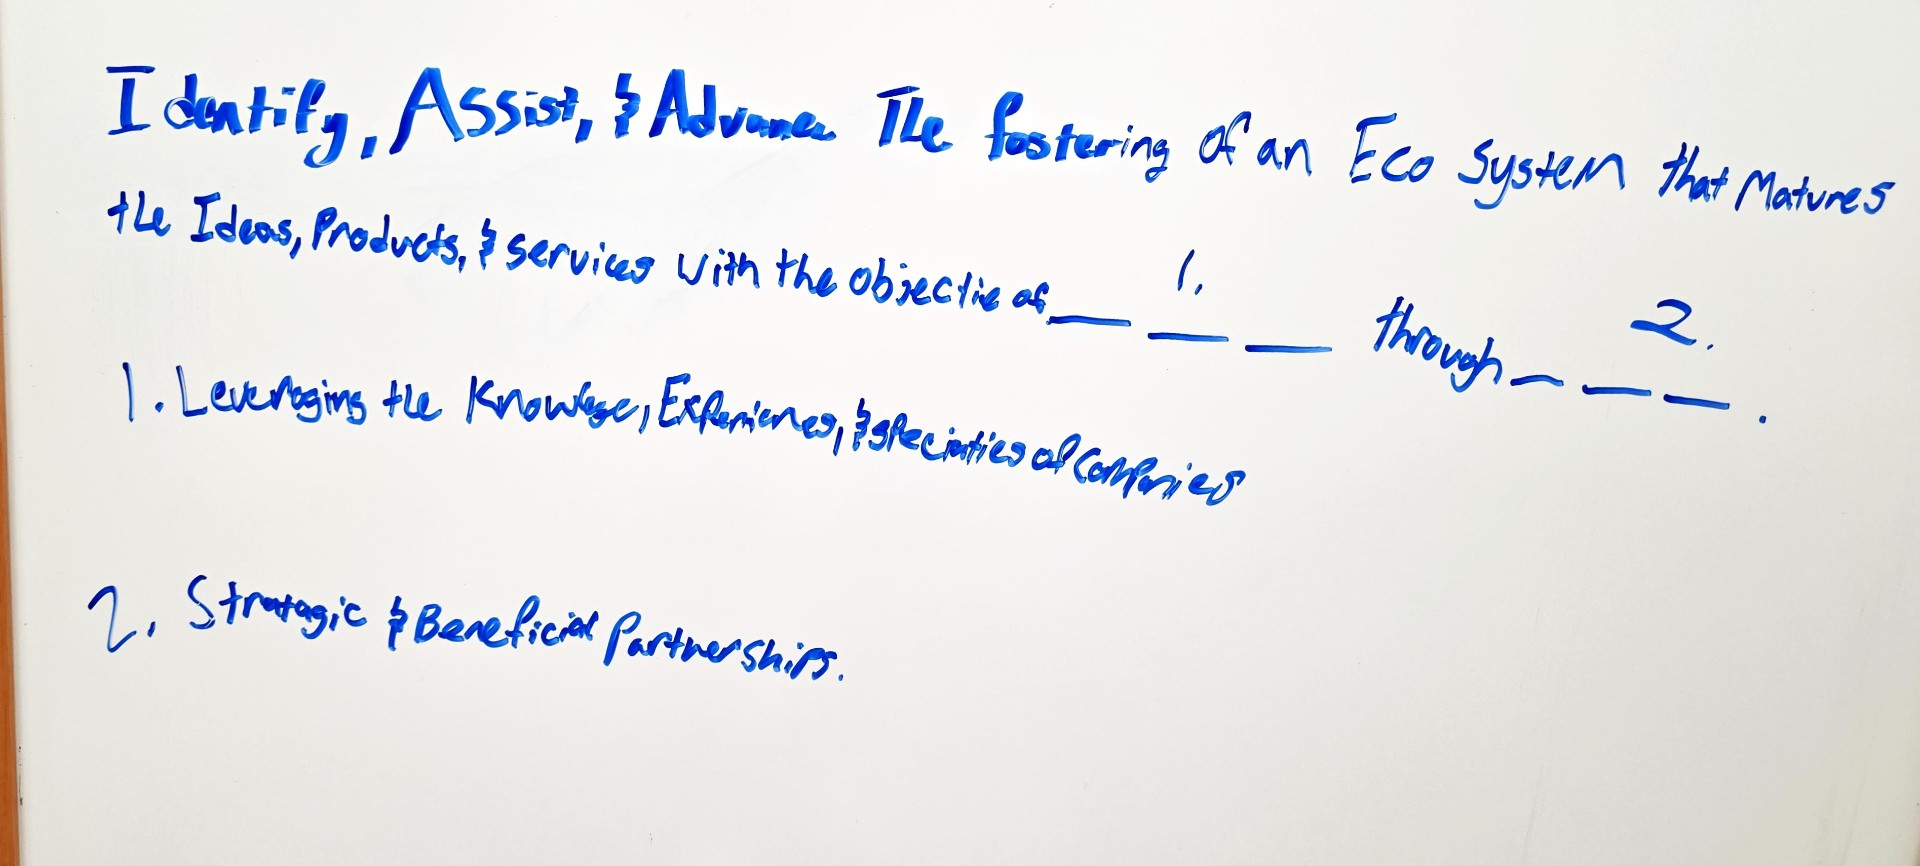 Identify, Assist, & Advance The fostering of an Eco System that Matures
the Ideas, Products, & services with the objective of ___ 1. ___ ___ through __ 2. ___ ___.
1. Leveraging the Knowledge, Experiences, & specialties of Companies
2. Strategic & Beneficial Partnerships.